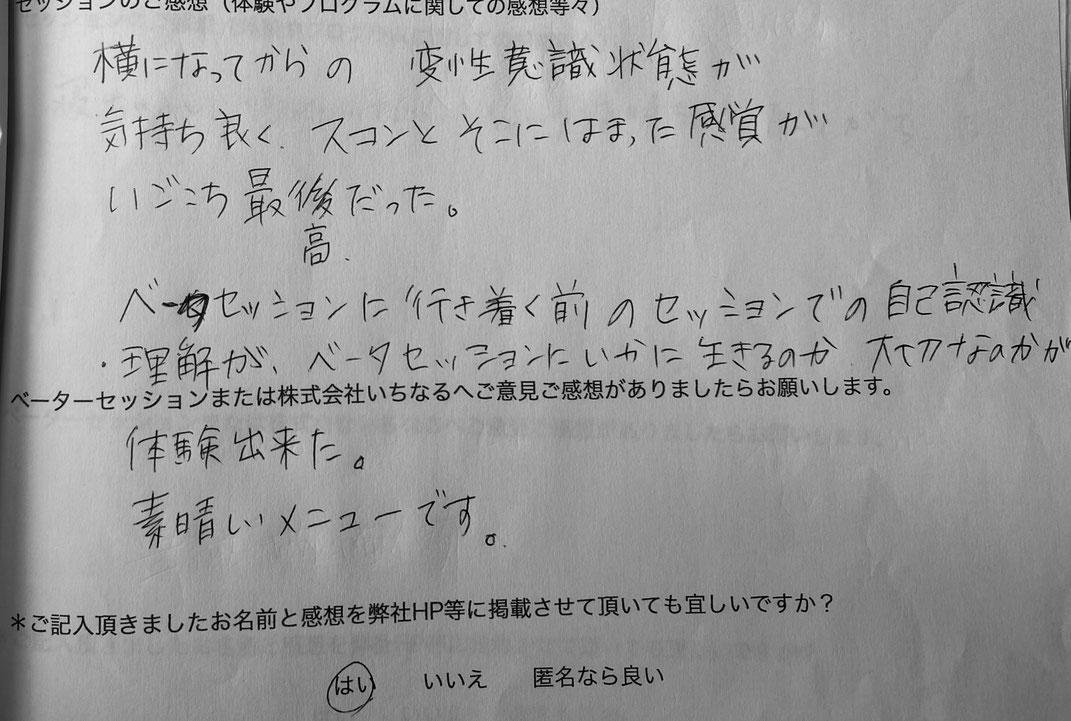 セッションのご感想（体験やプログラムに関しての感想等々）
横になってからの 変性意識状態が
気持ち良く、スコンと そこにはまった感覚が
いごこち最後だった。
高
ベータセッションに行き着く前のセッションでの自己認識
・理解が、ベータセッションにいかに生きるのか 大切なのかが
ベーターセッションまたは株式会社いちなるへご意見ご感想がありましたらお願いします。
体験出来た。
素晴しいメニューです。
＊ご記入頂きましたお名前と感想を弊社HP等に掲載させて頂いても宜しいですか？
はい いいえ 匿名なら良い